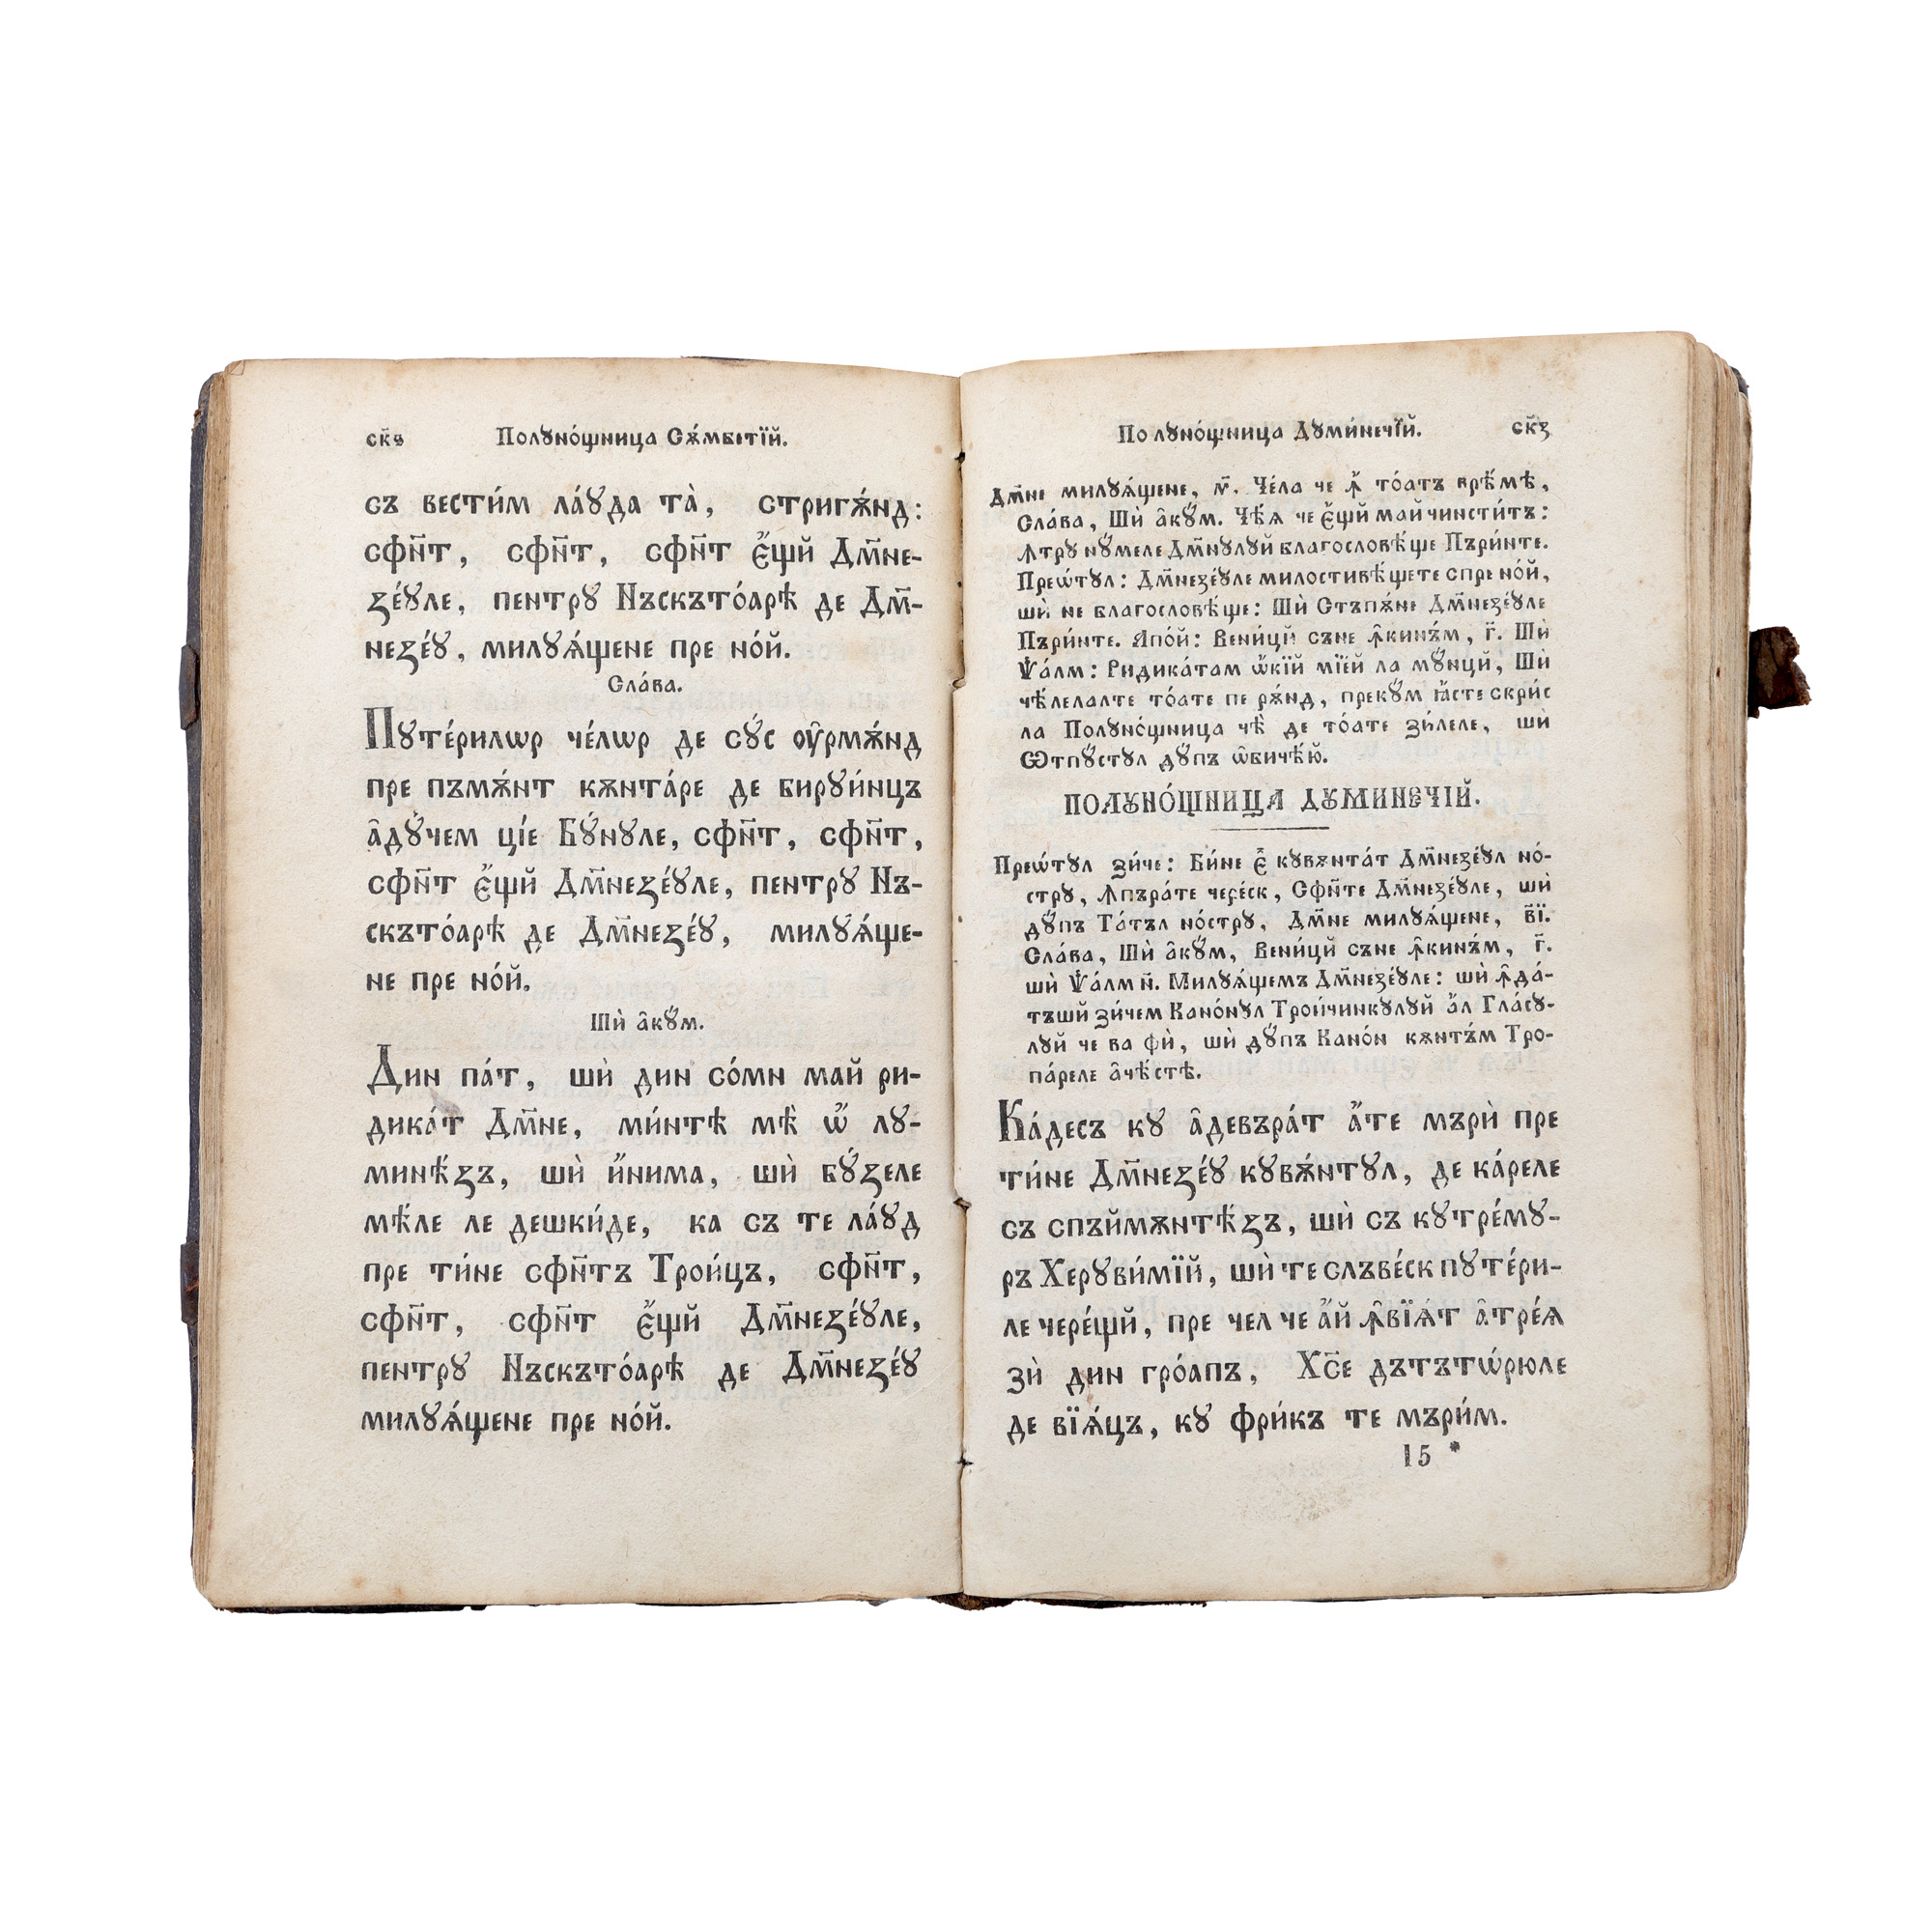 ск҃ѕ Полꙋно́щница Сѫ́мбетїй.
съ вестим ла́ꙋда та̀, стригѫ́нд:
сфн҃т, сфн҃т, сфн҃т є҆́щй Дм҃не-
зе́ꙋле, пентрꙋ Нъскъто́арѣ де Дм҃-
незе́ꙋ, милꙋѧ́щене пре но́й.
Сла́ва.
Пꙋте́рилѡр че́лѡр де сꙋ́с ᲂу҆рмѫ́нд
пре пъмѫ́нт кѫнта́ре де бирꙋи́нцъ
а҆дꙋ́чем ціе Бꙋ́нꙋле, сфн҃т, сфн҃т,
сфн҃т є҆́щй Дм҃незе́ꙋле, пентрꙋ Нъ-
скъто́арѣ де Дм҃незе́ꙋ, милꙋѧ́ще-
не пре но́й.
Шѝ а҆кꙋ́м.
Дин па́т, шѝ дин со́мн май ри-
дика́т Дм҃не, ми́нтѣ мѣ̀ ѡ҆̀ лꙋ-
минѣ́зъ, шѝ и҆́нима, шѝ бꙋ́зеле
мѣ́ле ле дешки́де, ка съ те ла́ꙋд
пре ти́не сфн҃тъ Трои́цъ, сфн҃т,
сфн҃т, сфн҃т є҆́щй Дм҃незе́ꙋле,
пентрꙋ Нъскъто́арѣ де Дм҃незе́ꙋ
милꙋѧ́щене пре но́й.
Полꙋно́щница Дꙋми́нечїй. ск҃з
Дм҃не милꙋѧ́щене, м҃. Че́ла че ꙟ҆̀ то́атъ врѣ́мѣ,
Сла́ва, Шѝ а҆кꙋ́м. Чѣ́ѧ че є҆́щй май чинсти́тъ:
Ꙟтрꙋ нꙋ́меле Дм҃нꙋлꙋй благословѣ́ще Пъри́нте.
Прео́тꙋл: Дм҃незе́ꙋле милостивѣ́щете спре но́й,
шѝ не благословѣ́ще: Шѝ Стъпѫ́не Дм҃незе́ꙋле
Пъри́нте. Апо́й: Вени́цй съне ꙟ҆кинъ́м, г҃. Шѝ
Ѱа́лм: Ридика́там ѻ҆кїй мїей ла мꙋ́нцй, Шѝ
чѣ́лелалте то́ате пе рѫ́нд, прекꙋ́м ꙗ҆́сте скри́с
ла Полꙋно́щница чѣ̀ де то́ате зи́леле, шѝ
Ѿпꙋ́стꙋл дꙋ́пъ ѡ҆бичѣ́ю̆.
ПОЛꙊНО́ЩНИЦА ДꙊМИНЕЧІЙ.
Прео́тꙋл зи́че: Би́не є҆́ кꙋвѫнта́т Дм҃незе́ꙋл но́-
стрꙋ, Ꙟпъра́те чере́ск, Сфн҃те Дм҃незе́ꙋле, шѝ
дꙋ́пъ Та́тъл но́стрꙋ, Дм҃не милꙋѧ́щене, в҃і.
Сла́ва, Шѝ а҆кꙋ́м, Вени́цй съне ꙟ҆кинъ́м, г҃.
шѝ Ѱа́лм н҃. Милꙋѧ́щемъ Дм҃незе́ꙋле: шѝ ꙟ҆да́-
тъшй зи́чем Кано́нꙋл Трои́чинкꙋлꙋй а҆́л Гла́сꙋ-
лꙋй че ва фѝ, шѝ дꙋ́пъ Кано́н кѫнтъ́м Тро-
па́реле а҆чѣ́стѣ.
Ка́десъ кꙋ а҆девъра́т а҆́те мърѝ пре
ти́не Дм҃незе́ꙋ кꙋвѫ́нтꙋл, де ка́реле
съ спъймѫнтѣ́зъ, шѝ съ кꙋтре́мꙋ-
ръ Херꙋви́мїй, шѝ те слъве́ск пꙋте́ри-
ле чере́щй, пре чел че а҆́й ꙟ҆вїѧ́т а҆тре́ѧ
зѝ дин гро́апъ, Хс҃е дътътѡ́рюле
де вїѧ́цъ, кꙋ фри́къ те мъри́м.
15 *